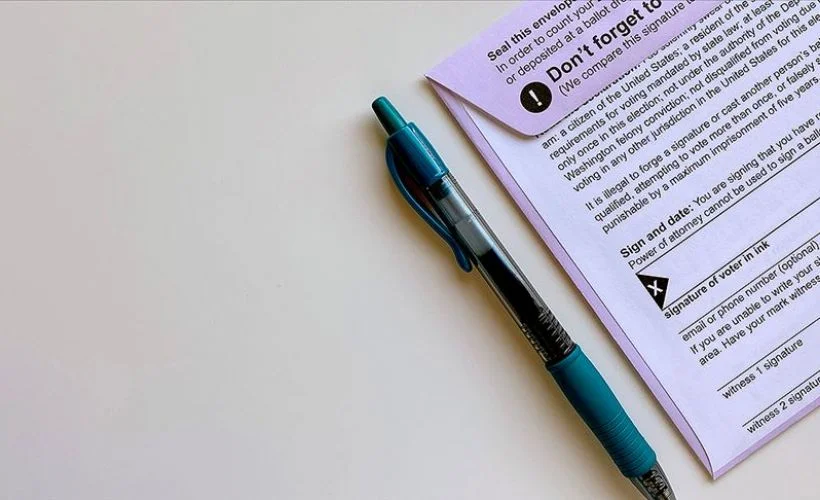 Seal this envelop
In order to count your
or deposited at a ballot dr
! Don't forget to
(We compare this signature to
solemnly swear
am: a citizen of the United States; a resident of the s
requirements for voting mandated by state law; at least
only once in this election; not under the authority of the Dep
Washington felony conviction; not disqualified from voting due
voting in any other jurisdiction in the United States for this ele
It is illegal to forge a signature or cast another person's b
qualified, attempting to vote more than once, or falsely s
punishable by a maximum imprisonment of five years,
Sign and date: You are signing that you have r
Power of attorney cannot be used to sign a ball
X
signature of voter in ink
email or phone number (optional)
If you are unable to write your s
area. Have your mark witness
witness 1 signature
witness 2 signatur